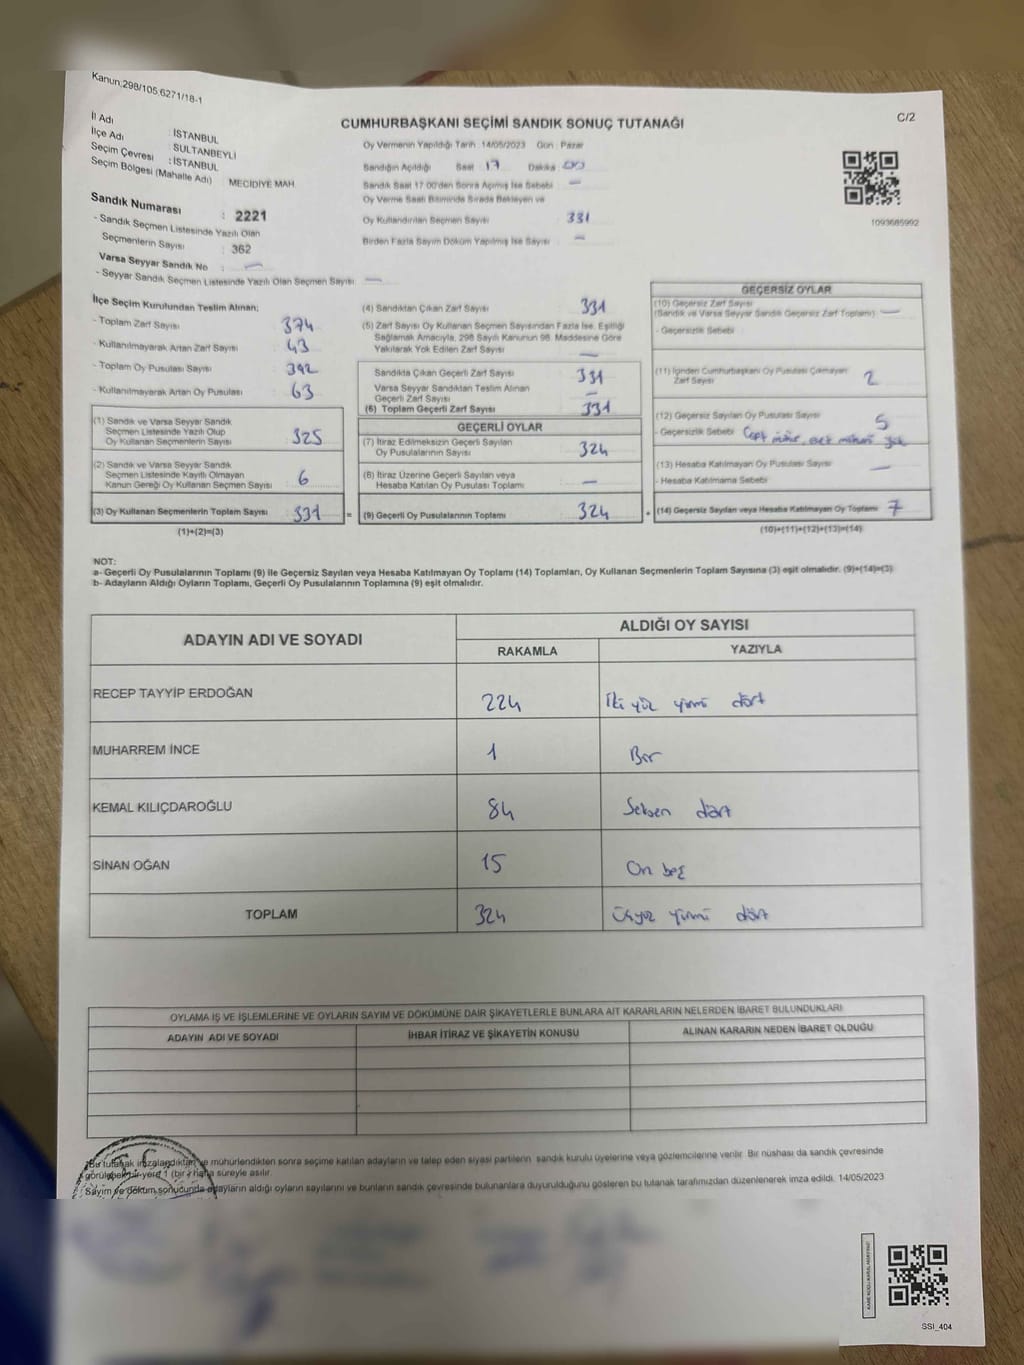 Kanun 298/105.6271/18-1
C/2
İl Adı : İSTANBUL
İlçe Adı : SULTANBEYLİ
Seçim Çevresi : İSTANBUL
Seçim Bölgesi (Mahalle Adı) : MECİDİYE MAH.
Sandık Numarası : 2221
- Sandık Seçmen Listesinde Yazılı Olan
Seçmenlerin Sayısı : 362
Varsa Seyyar Sandık No : —
- Seyyar Sandık Seçmen Listesinde Yazılı Olan Seçmen Sayısı : —
CUMHURBAŞKANI SEÇİMİ SANDIK SONUÇ TUTANAĞI
Oy Vermenin Yapıldığı Tarih : 14/05/2023 Gün : Pazar
Sandığın Açıldığı Saat 17 Dakika 00
Sandık Saat 17.00'den Sonra Açılmış İse Sebebi : —
Oy Verme Saati Bitiminde Sırada Bekleyen ve
Oy Kullandırılan Seçmen Sayısı : 331
Birden Fazla Sayım Döküm Yapılmış İse Sayısı : —
1093685992
İlçe Seçim Kurulundan Teslim Alınan;
- Toplam Zarf Sayısı : 374
- Kullanılmayarak Artan Zarf Sayısı : 43
- Toplam Oy Pusulası Sayısı : 392
- Kullanılmayarak Artan Oy Pusulası : 63
(1) Sandık ve Varsa Seyyar Sandık
Seçmen Listesinde Yazılı Olup
Oy Kullanan Seçmenlerin Sayısı : 325
(2) Sandık ve Varsa Seyyar Sandık
Seçmen Listesinde Kayıtlı Olmayan
Kanun Gereği Oy Kullanan Seçmen Sayısı : 6
(3) Oy Kullanan Seçmenlerin Toplam Sayısı : 331 =
(1)+(2)=(3)
(4) Sandıktan Çıkan Zarf Sayısı : 331
(5) Zarf Sayısı Oy Kullanan Seçmen Sayısından Fazla İse, Eşitliği
Sağlamak Amacıyla, 298 Sayılı Kanunun 98. Maddesine Göre
Yakılarak Yok Edilen Zarf Sayısı : —
Sandıkta Çıkan Geçerli Zarf Sayısı : 331
Varsa Seyyar Sandıktan Teslim Alınan
Geçerli Zarf Sayısı : —
(6) Toplam Geçerli Zarf Sayısı : 331
GEÇERLİ OYLAR
(7) İtiraz Edilmeksizin Geçerli Sayılan
Oy Pusulalarının Sayısı : 324
(8) İtiraz Üzerine Geçerli Sayılan veya
Hesaba Katılan Oy Pusulası Toplamı : —
(9) Geçerli Oy Pusulalarının Toplamı : 324 +
GEÇERSİZ OYLAR
(10) Geçersiz Zarf Sayısı
(Sandık ve Varsa Seyyar Sandık Geçersiz Zarf Toplamı) : —
- Geçersizlik Sebebi :
(11) İçinden Cumhurbaşkanı Oy Pusulası Çıkmayan
Zarf Sayısı : 2
(12) Geçersiz Sayılan Oy Pusulası Sayısı : 5
- Geçersizlik Sebebi :
(13) Hesaba Katılmayan Oy Pusulası Sayısı : —
- Hesaba Katılmama Sebebi :
(14) Geçersiz Sayılan veya Hesaba Katılmayan Oy Toplamı : 7
(10)+(11)+(12)+(13)=(14)
NOT:
a- Geçerli Oy Pusulalarının Toplamı (9) ile Geçersiz Sayılan veya Hesaba Katılmayan Oy Toplamı (14) Toplamları, Oy Kullanan Seçmenlerin Toplam Sayısına (3) eşit olmalıdır. (9)+(14)=(3)
b- Adayların Aldığı Oyların Toplamı, Geçerli Oy Pusulalarının Toplamına (9) eşit olmalıdır.
ADAYIN ADI VE SOYADI
ALDIĞI OY SAYISI
RAKAMLA YAZIYLA
RECEP TAYYİP ERDOĞAN 224 İki yüz yirmi dört
MUHARREM İNCE 1 Bir
KEMAL KILIÇDAROĞLU 84 Seksen dört
SİNAN OĞAN 15 On beş
TOPLAM 324 Üçyüz yirmi dört
OYLAMA İŞ VE İŞLEMLERİNE VE OYLARIN SAYIM VE DÖKÜMÜNE DAİR ŞİKAYETLERLE BUNLARA AİT KARARLARIN NELERDEN İBARET BULUNDUKLARI
ADAYIN ADI VE SOYADI İHBAR İTİRAZ VE ŞİKAYETİN KONUSU ALINAN KARARIN NEDEN İBARET OLDUĞU
Bu tutanak imzalandıktan ve mühürlendikten sonra seçime katılan adayların ve talep eden siyasi partilerin sandık kurulu üyelerine veya gözlemcilerine verilir. Bir nüshası da sandık çevresinde
görülebilir bir yere 1 (bir) hafta süreyle asılır.
Sayım ve döküm sonucunda adayların aldığı oyların sayılarını ve bunların sandık çevresinde bulunanlara duyurulduğunu gösteren bu tutanak tarafımızdan düzenlenerek imza edildi. 14/05/2023
SSI_404